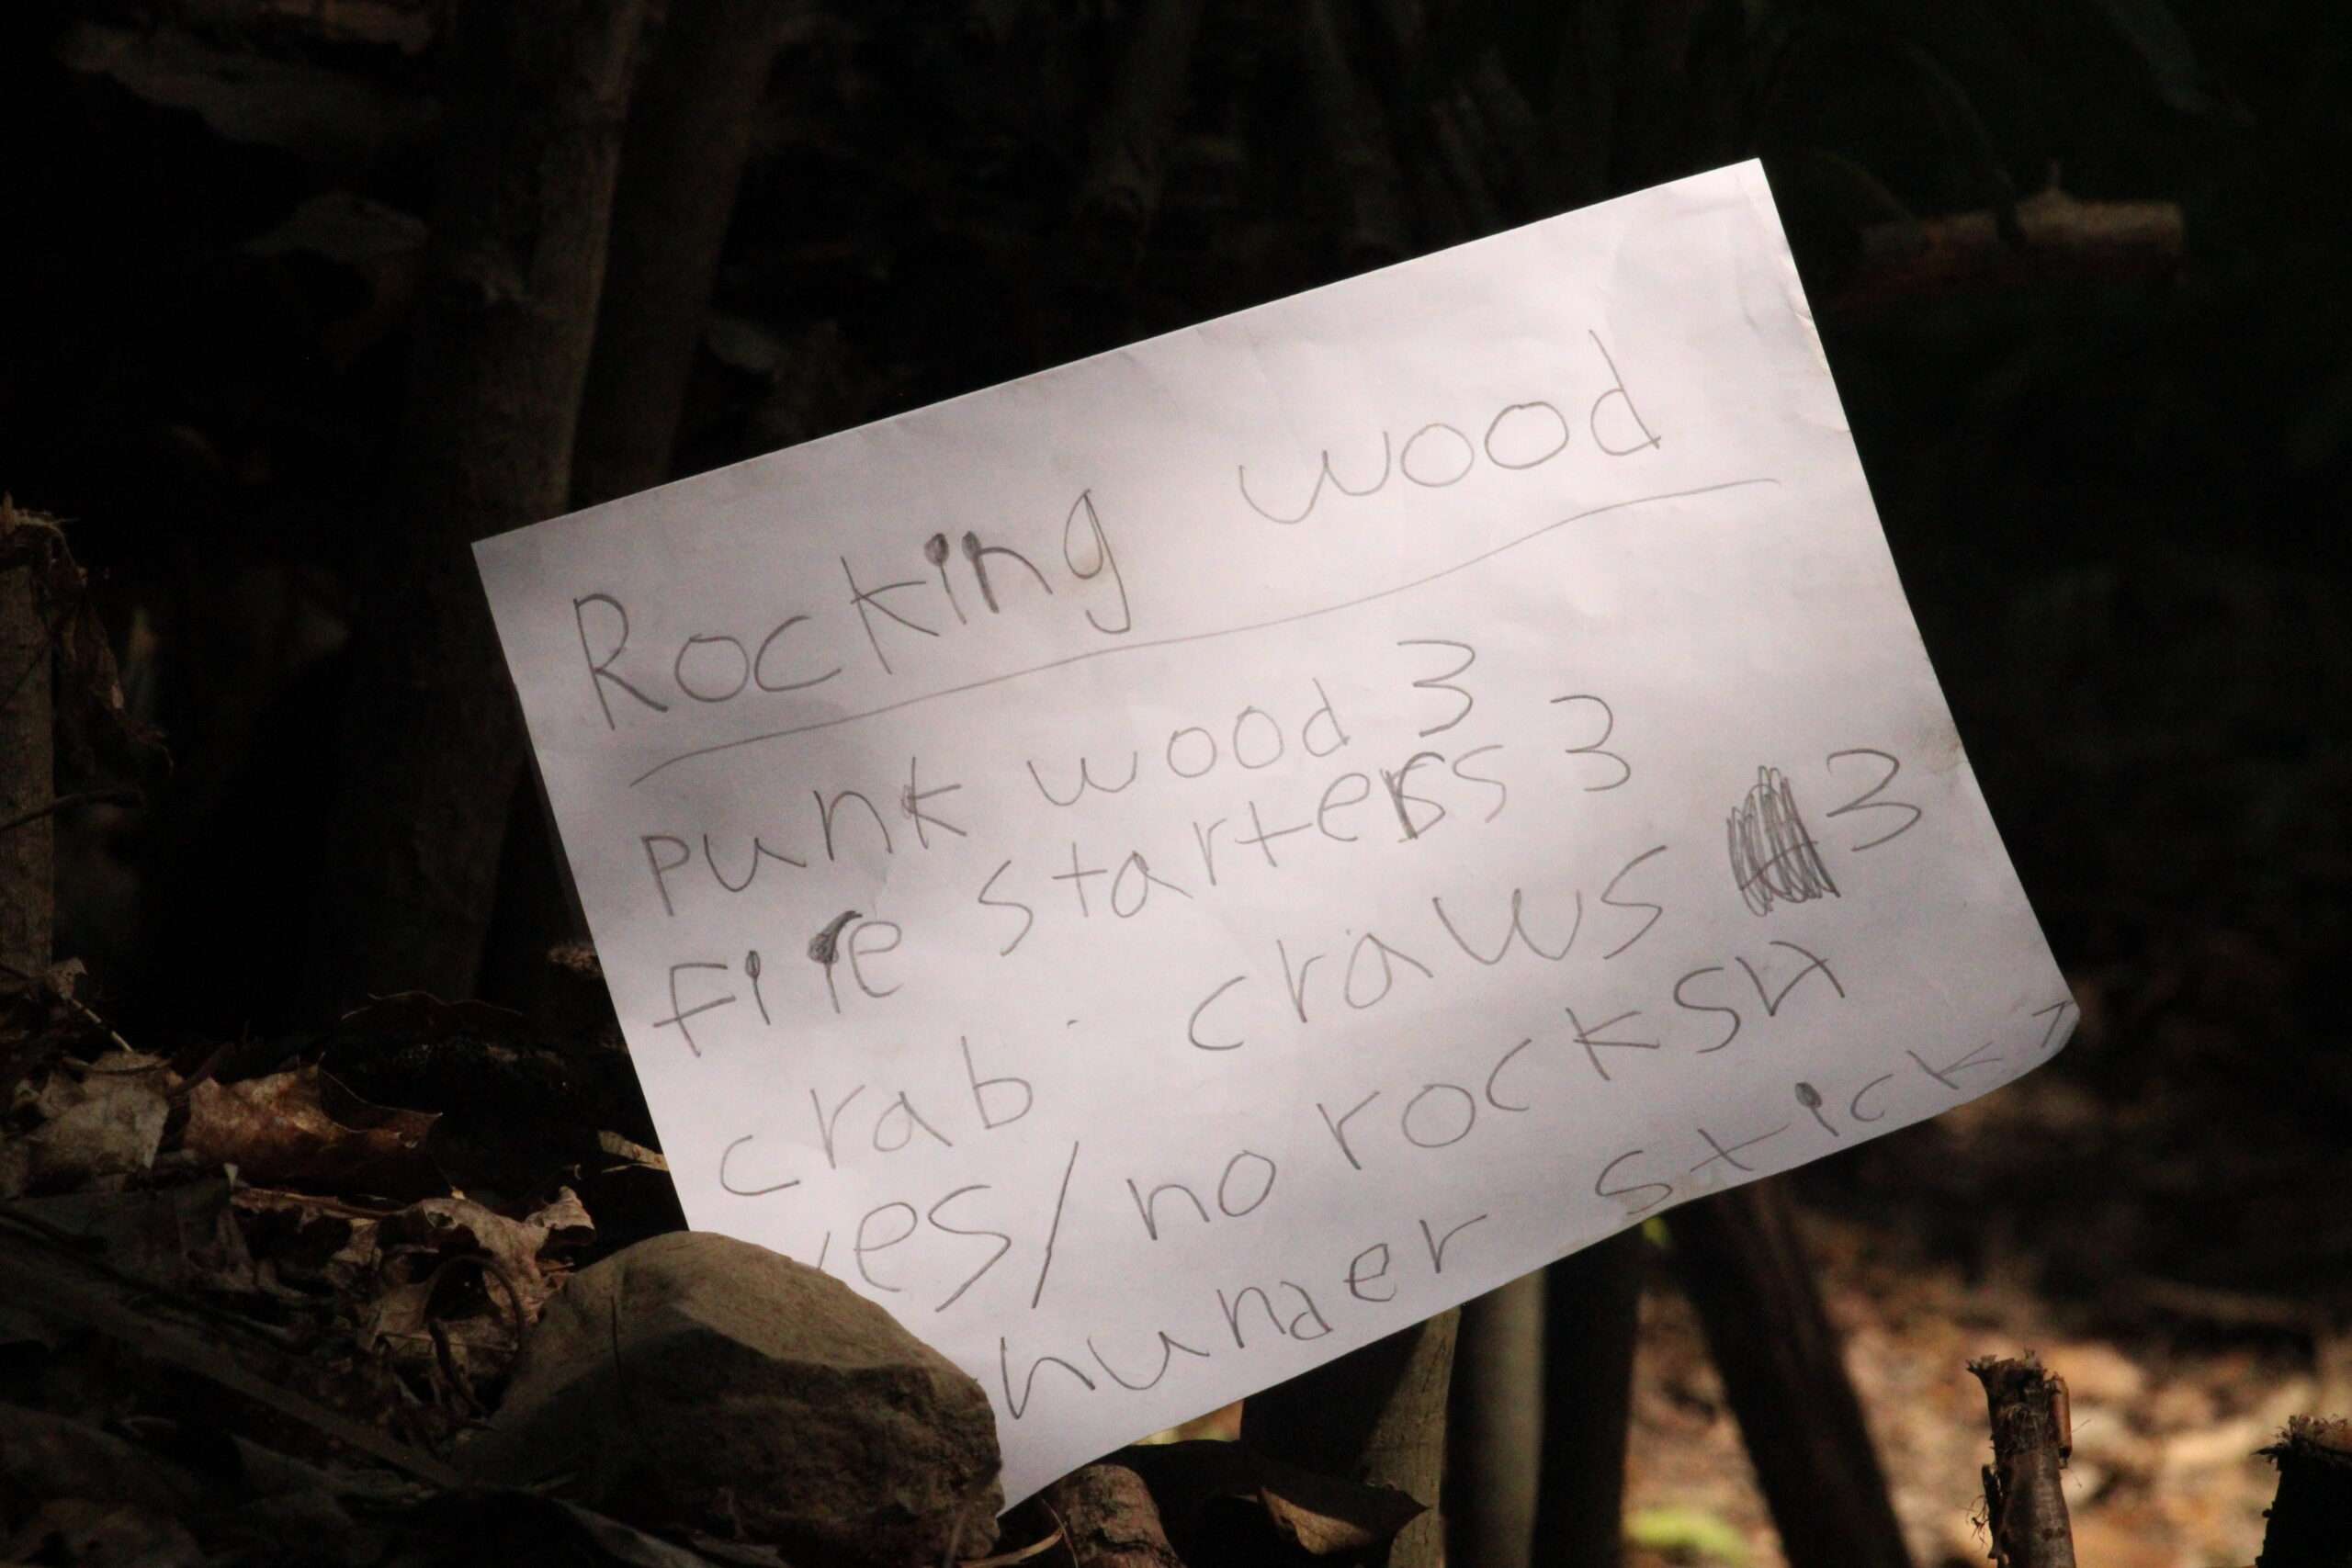 Rocking wood
punk wood 3
Fire starters 3
crab craws 3
yes/no rocks 4
hunder stick 7